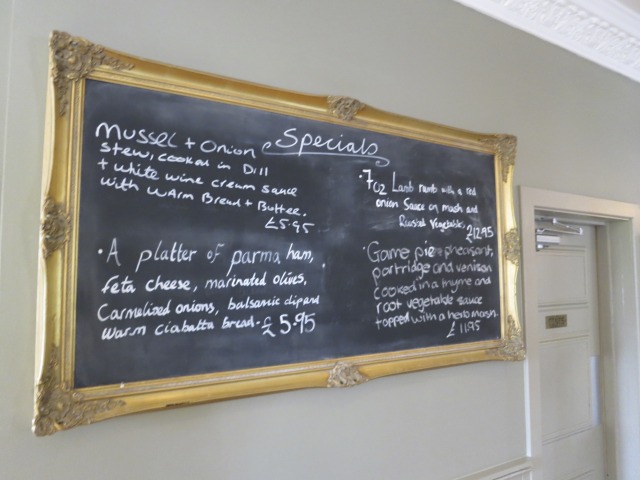 Specials
Mussel + Onion
stew, cooked in Dill
+ white wine cream sauce
with warm Bread + Butter.
£5.95
· A platter of parma ham,
feta cheese, marinated olives,
Carmelised onions, balsamic dip and
warm ciabatta bread · £5.95
· 7oz Lamb rump with a red
onion Sauce on mash and
Roasted Vegetables £12.95
· Game pie · pheasant,
partridge and venison
cooked in a thyme and
root vegetable sauce
topped with a herb mash.
£11.95